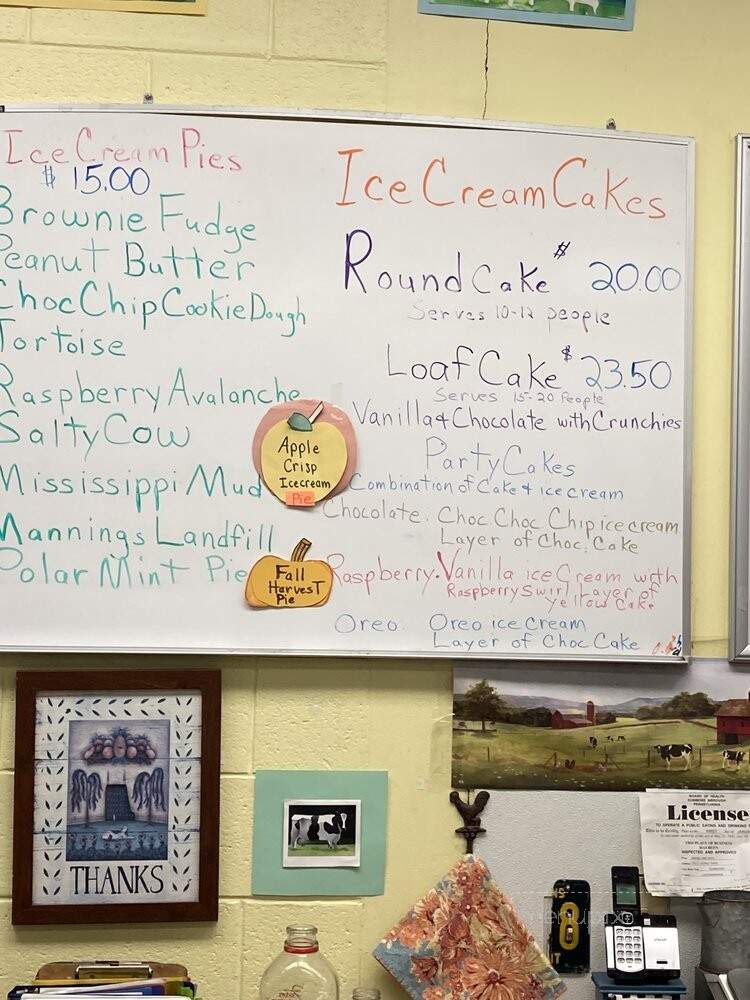 Ice Cream Pies
$ 15.00
Brownie Fudge
Peanut Butter
Choc Chip Cookie Dough
Tortoise
Raspberry Avalanche
Salty Cow
Mississippi Mud
Mannings Landfill
Polar Mint Pie
Apple
Crisp
Icecream
Pie
Fall
Harvest
Pie
Ice Cream Cakes
Round Cake $ 20.00
Serves 10-12 people
Loaf Cake $ 23.50
Serves 15-20 People
Vanilla & Chocolate with Crunchies
Party Cakes
Combination of Cake & ice cream
Chocolate. Choc. Choc Chip ice cream
Layer of Choc. Cake
Raspberry. Vanilla ice Cream with
Raspberry Swirl Layer of
Yellow Cake
Oreo. Oreo ice cream
Layer of Choc Cake
THANKS
BOARD OF HEALTH
PENNSYLVANIA
License
TO OPERATE A PUBLIC EATING AND DRINKING
THIS PLACE OF BUSINESS
HAS BEEN
INSPECTED AND APPROVED
8
menupix